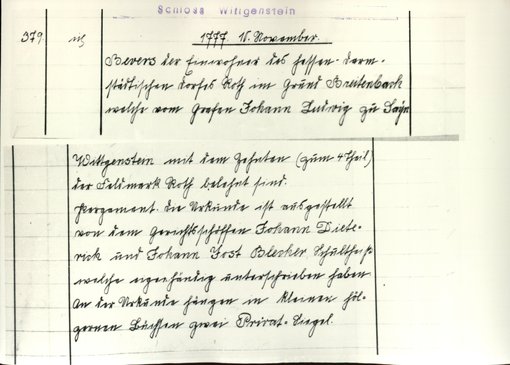 Schloss Wittgenstein
379. 1777. 11. November.
Revers der Einwohner des hessen-darm-
städtischen Dorfes Roth im Grund Breitenbach
welche vom Grafen Johann Ludwig zu Sayn
Wittgenstein mit dem Zehnten (zum 4 Theil)
der Feldmark Roth belehnt sind.
Pergament. Die Urkunde ist ausgestellt
von dem Gerichtsschöffen Johann Diete-
rick und Johann Jost Blecker, Schultheiß
welche eigenhändig unterschrieben haben
An der Urkunde hängen in kleinen höl-
zernen Büchsen zwei Privat-Siegel.